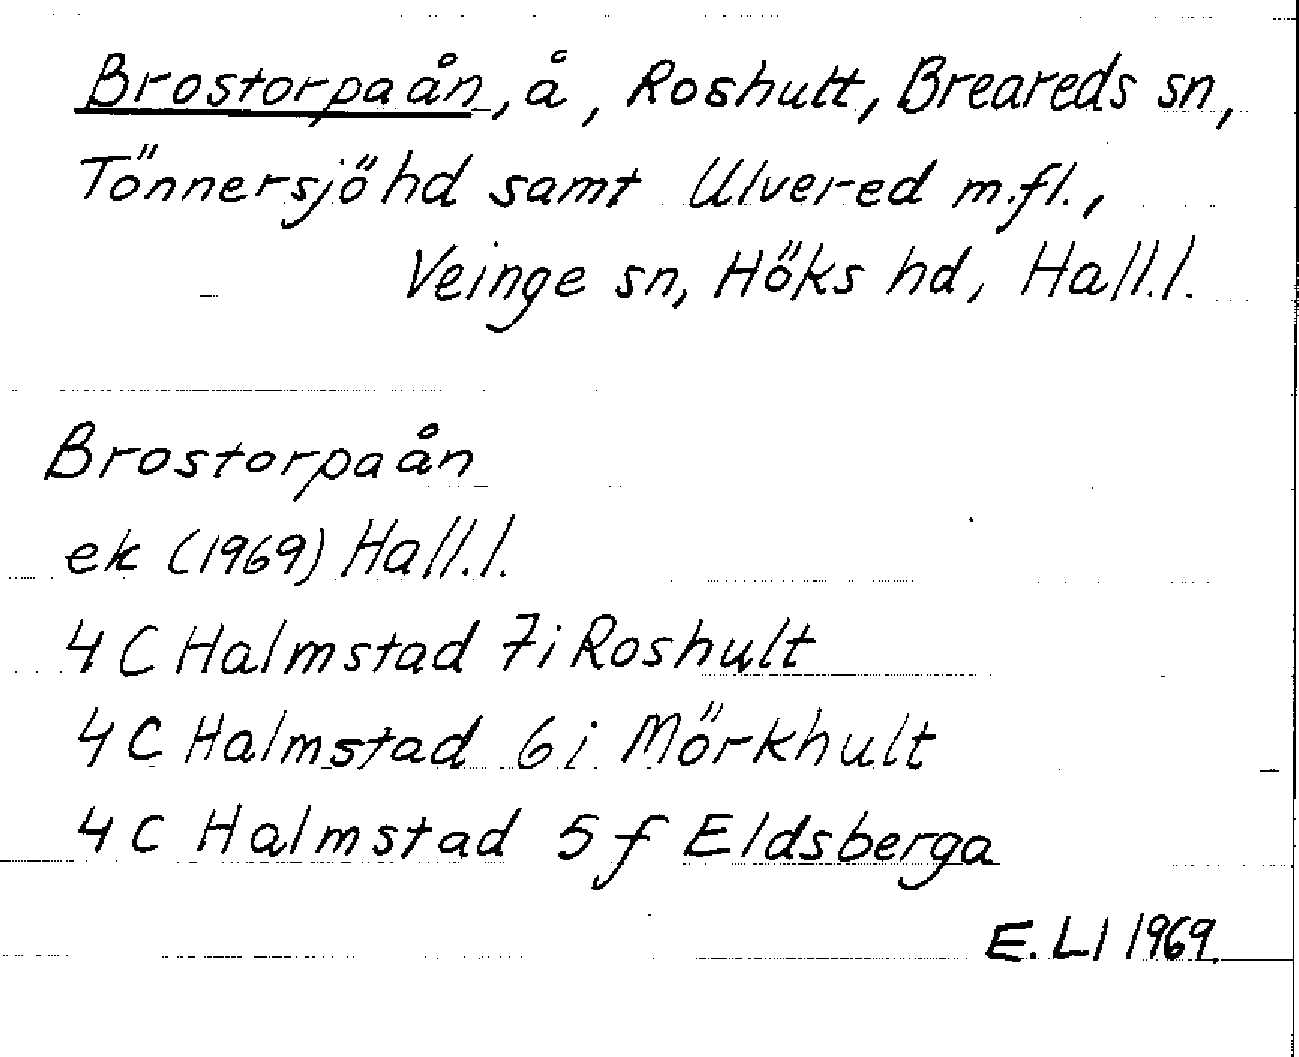 Brostorpaån, å, Roshult, Breareds sn,
Tönnersjö hd samt Ulvered m.fl.,
Veinge sn, Höks hd, Hall.l.
Brostorpaån
ek (1969) Hall.l.
4 C Halmstad 7 i Roshult
4 C Halmstad 6 i Mörkhult
4 C Halmstad 5 f Eldsberga
E. Ll 1969.